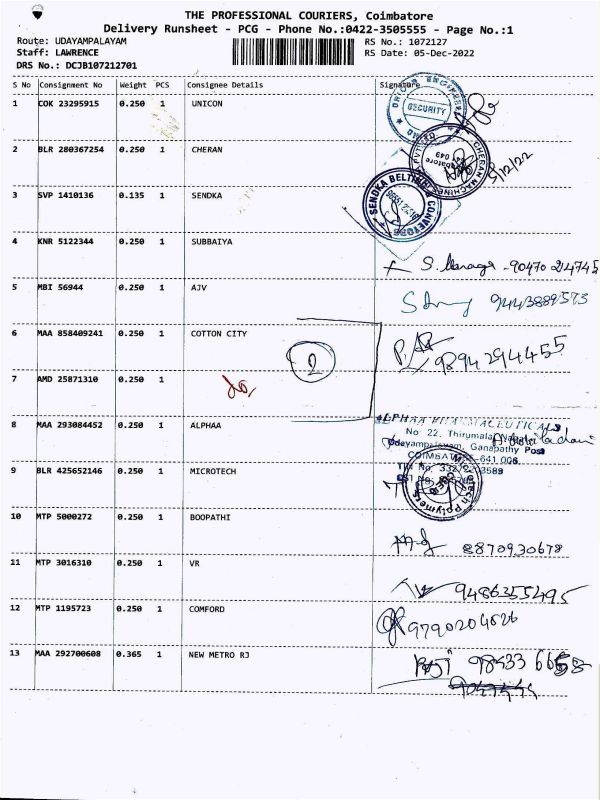 THE PROFESSIONAL COURIERS, Coimbatore
Delivery Runsheet - PCG - Phone No.:0422-3505555 - Page No.:1
Route: UDAYAMPALAYAM RS No.: 1072127
Staff: LAWRENCE RS Date: 05-Dec-2022
DRS No.: DCJB107212701
S No Consignment No Weight PCS Consignee Details Signature
1 COK 23295915 0.250 1 UNICON
SECURITY
2 BLR 280367254 0.250 1 CHERAN
CHERAN MACHINES
5/12/22
3 SVP 1410136 0.135 1 SENDKA
SENDKA BELTING CONVEYORS
4 KNR 5122344 0.250 1 SUBBAIYA
90470 24745
5 MBI 56944 0.250 1 AJV
9443889573
6 MAA 858409241 0.250 1 COTTON CITY
2
9894294455
7 AMD 25871310 0.250 1
8 MAA 293084452 0.250 1 ALPHAA
ALPHAA PHARMACEUTICALS
No: 22, Thirumalai Nagar,
Udayampalayam, Ganapathy Post
COIMBATORE-641 006
9 BLR 425652146 0.250 1 MICROTECH
Microtech Polymers
10 MTP 5000272 0.250 1 BOOPATHI
8870930678
11 MTP 3016310 0.250 1 VR
9486355495
12 MTP 1195723 0.250 1 COMFORD
9790204626
13 MAA 292700608 0.365 1 NEW METRO RJ